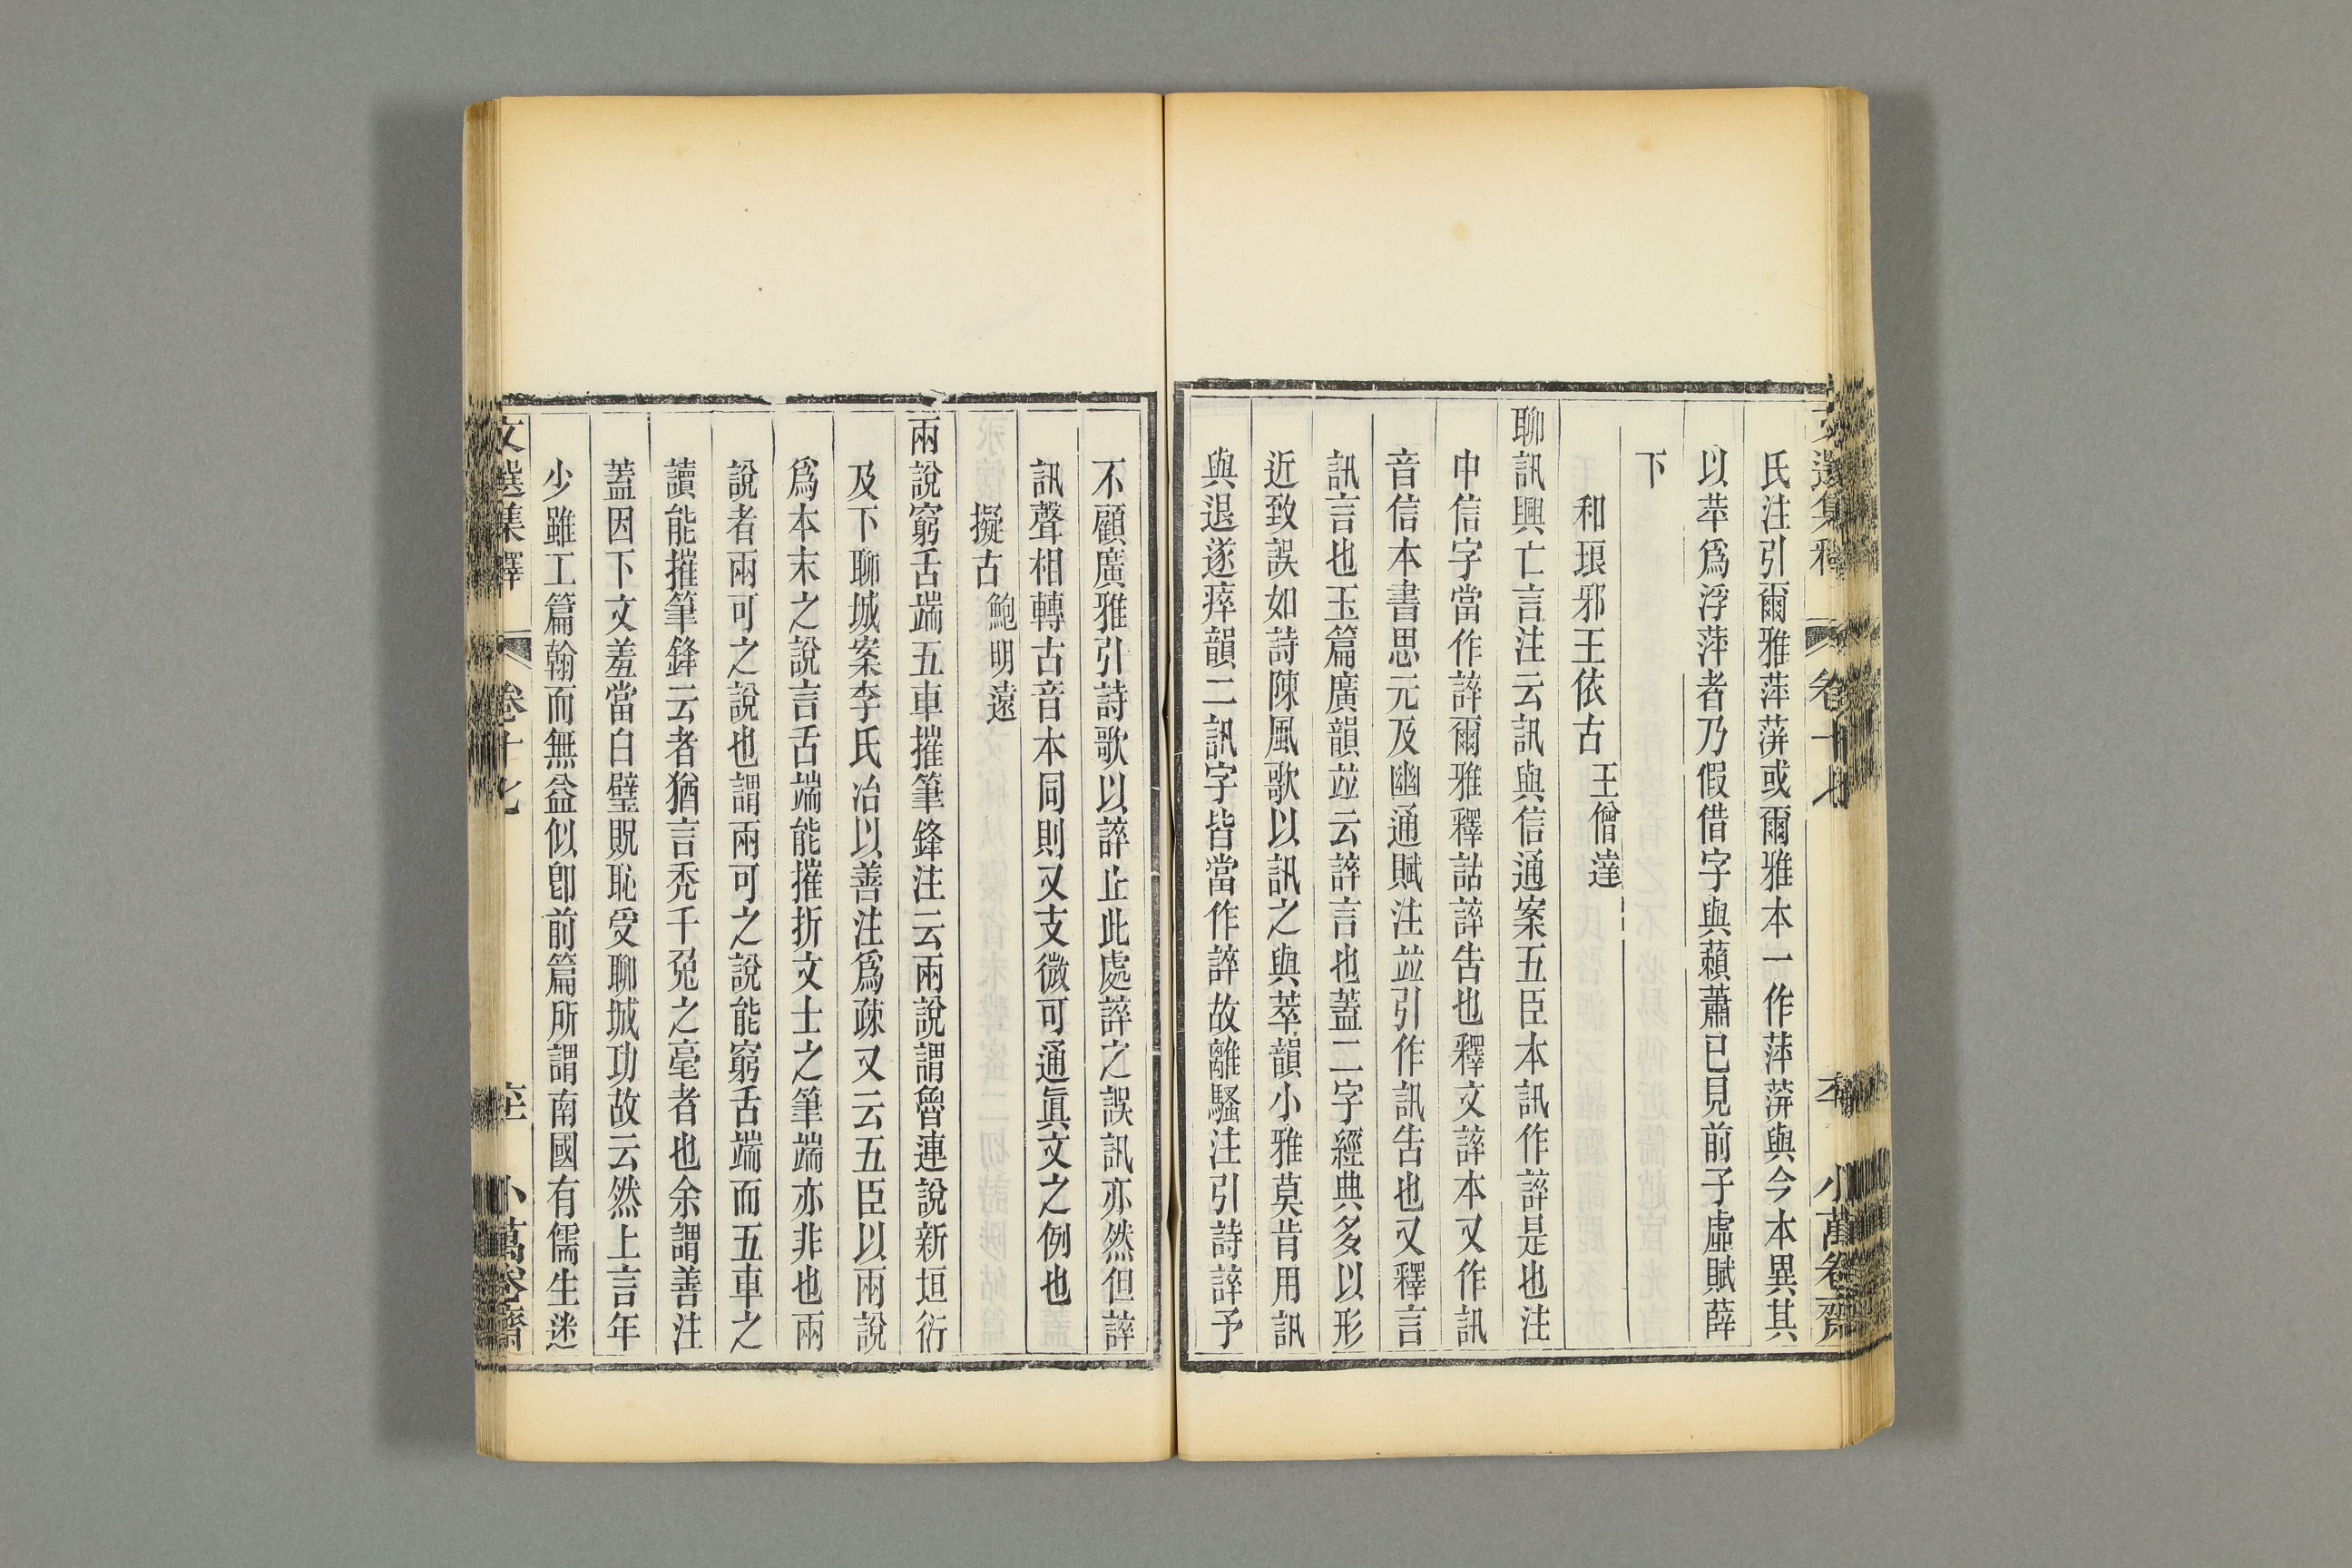 氏注引爾雅萍蓱或爾雅本一作萍蓱與今本異其
以苹爲浮萍者乃假借字與藾蕭已見前子虛賦薛
下
和琅邪王依古 王僧達
聊訊興亡言注云訊與信通案五臣本訊作誶是也注
中信字當作誶爾雅釋詁誶告也釋文誶本又作訊
音信本書思元及幽通賦注竝引作訊告也又釋言
訊言也玉篇廣韻竝云誶言也蓋二字經典多以形
近致誤如詩陳風歌以訊之與萃韻小雅莫肯用訊
與退遂瘁韻二訊字皆當作誶故離騷注引詩誶予
不顧廣雅引詩歌以誶止此處誶之誤訊亦然但誶
訊聲相轉古音本同則又支微可通眞文之例也
擬古 鮑明遠
兩說窮舌端五車摧筆鋒注云兩說謂魯連說新垣衍
及下聊城案李氏冶以善注爲疎又云五臣以兩說
爲本末之說言舌端能摧折文士之筆端亦非也兩
說者兩可之說也謂兩可之說能窮舌端而五車之
讀能摧筆鋒云者猶言禿千兔之毫者也余謂善注
蓋因下文羞當白璧貺恥受聊城功故云然上言年
少雖工篇翰而無益似卽前篇所謂南國有儒生迷
文選集釋 卷十七 小萬卷齋